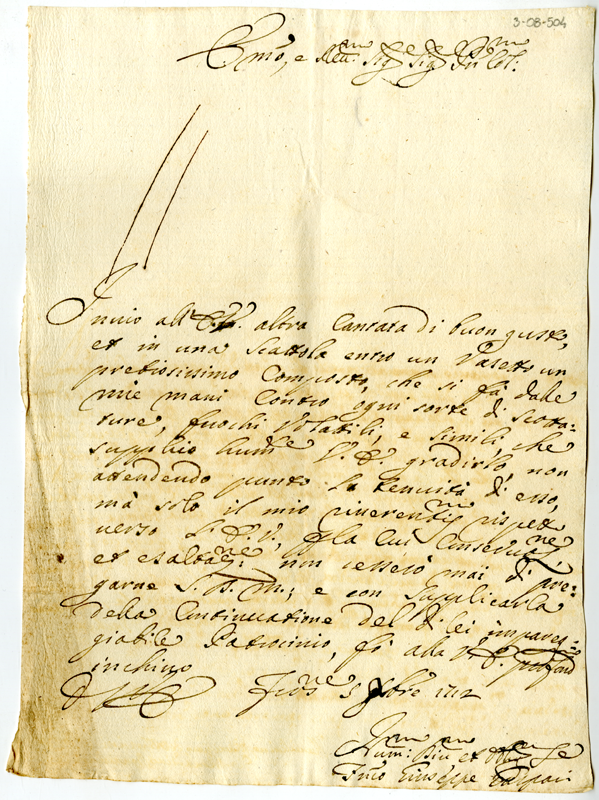 3-08-504
Em̃o, e Reu.mo Sig.r Sig.r P̃ron Col.mo
Inuio all' altra Cantata di buon gusto,
et in una Scattola entro un Vasetto un
pretiosissimo Composto, che si fà dalle
mie mani Contro ogni sorte di scotta=
ture, fuochi Volattili, e simili, che
supplico hum.te V. E. gradirlo, non
attendendo punto la tenuità di esso,
mà solo il mio riuerentis.mo rispetto
uerso L'E. V., p la cui Conseruaz.ne
et esaltaz.ne non cesserò mai di pre=
garne S. D. M.; e con supplicarla
della Continuatione del di lei impareg=
giabile Patrocinio, fò alla V. E. profond.o
inchino
D. V. E. 5 9bre 1712
Hum.mo Diu.mo et Obl.mo Se
Giuseppe